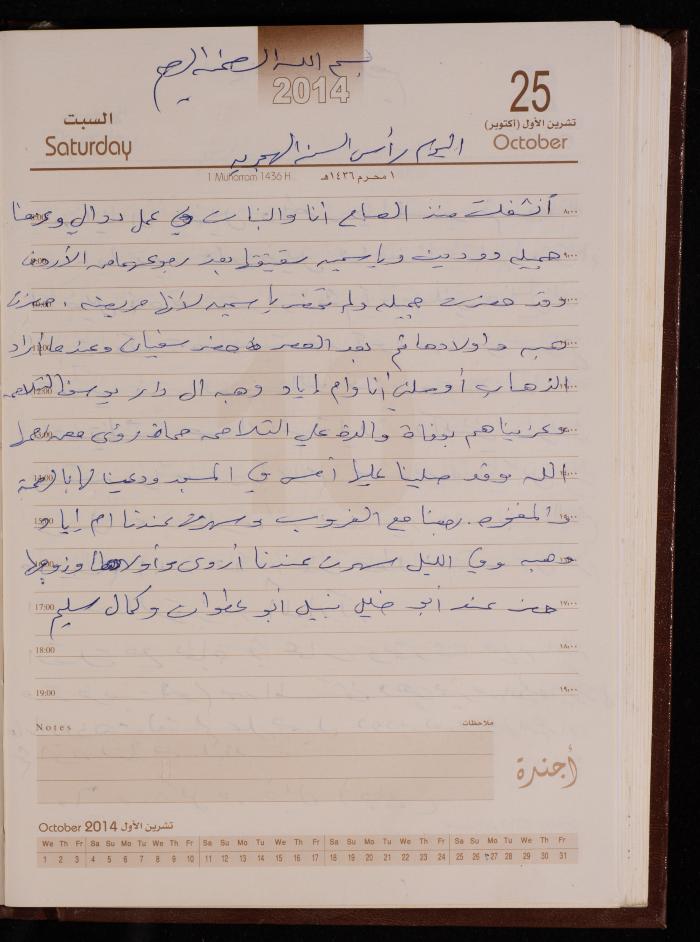 بسم الله الرحمن الرحيم
2014
25
السبت
تشرين الأول (أكتوبر)
Saturday
October
اليوم رأس السنة الهجرية
1 Muharram 1436 H
١ محرم ١٤٣٦هـ
أنشغلت منذ الصباح أنا والبنات في عمل دوالي وعزمنا
جميله وودين وياسمين شقيقتها بعد رجوعهما من الأردن
وقد حضرت جميله ولم تحضر ياسمين لأنها مريضة . حضرت
هبه وأولادها ثم بعد العصر حضر سفيان وعندما أراد
الذهاب أوصلني أنا وام إياد وهبه ال دار يوسف التلاحمه
وعزيناهم بوفاة والدة علي التلاحمه حماة رؤى رحمها
الله وقد صلينا عليها أمس في المسجد ودعينا لها بالرحمة
والمغفره . رجعنا مع الغروب وسهرت عندنا ام إياد
وهبه وفي الليل سهرت عندنا أروى وأولادها وزوجها
حضر عند أبو خليل نبيل أبو عطوان وكمال سليم
17:00 ١٧:٠٠
18:00 ١٨:٠٠
19:00 ١٩:٠٠
Notes ملاحظات
أجندة
October 2014 تشرين الأول
We Th Fr Sa Su Mo Tu We Th Fr Sa Su Mo Tu We Th Fr Sa Su Mo Tu We Th Fr Sa Su Mo Tu We Th Fr
1 2 3 4 5 6 7 8 9 10 11 12 13 14 15 16 17 18 19 20 21 22 23 24 25 26 27 28 29 30 31